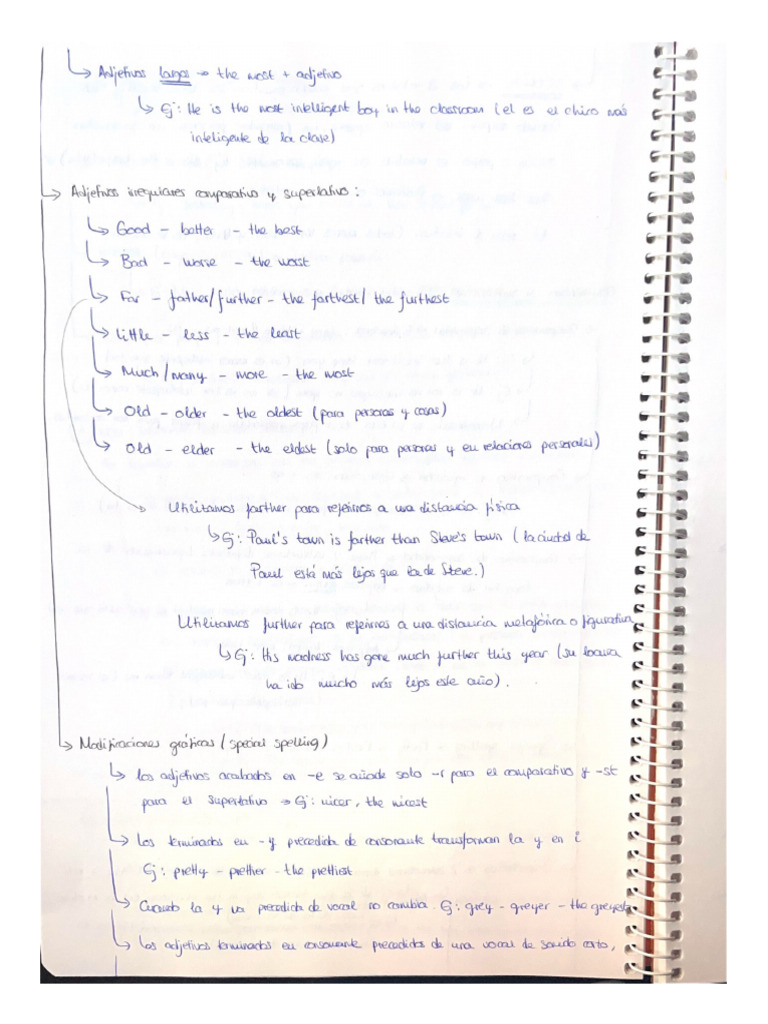 ↳ Adjetivos largos → the most + adjetivo
↳ Ej: He is the most intelligent boy in the classroom (el es el chico más
inteligente de la clase)
↳ Adjetivos irregulares comparativo y superlativo:
↳ Good - better - the best
↳ Bad - worse - the worst
↳ Far - father/further - the farthest/ the furthest
↳ Little - less - the least
↳ Much/many - more - the most
↳ Old - older - the oldest (para personas y cosas)
↳ Old - elder - the eldest (solo para personas y en relaciones personales)
Utilizamos farther para referirnos a una distancia física
↳ Ej: Paul's town is farther than Steve's town (la ciudad de
Paul está más lejos que la de Steve.)
Utilizamos further para referirnos a una distancia metafórica o figurativa
↳ Ej: His madness has gone much further this year (su locura
ha ido mucho más lejos este año).
↳ Modificaciones gráficas (special spelling)
↳ Los adjetivos acabados en -e se añade solo -r para el comparativo y -st
para el superlativo → Ej: nicer, the nicest
↳ Los terminados en -y precedida de consonante transforman la y en i
Ej: pretty - prettier - the prettiest
↳ Cuando la y va precedida de vocal no cambia. Ej: grey - greyer - the greyest
↳ Los adjetivos terminados en consonante precedida de una vocal de sonido corto,